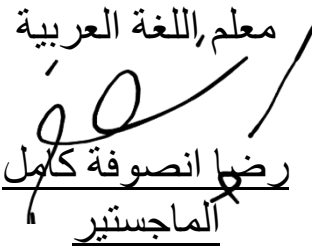 معلم اللغة العربية
رضا انصوفة كامل
الماجستير